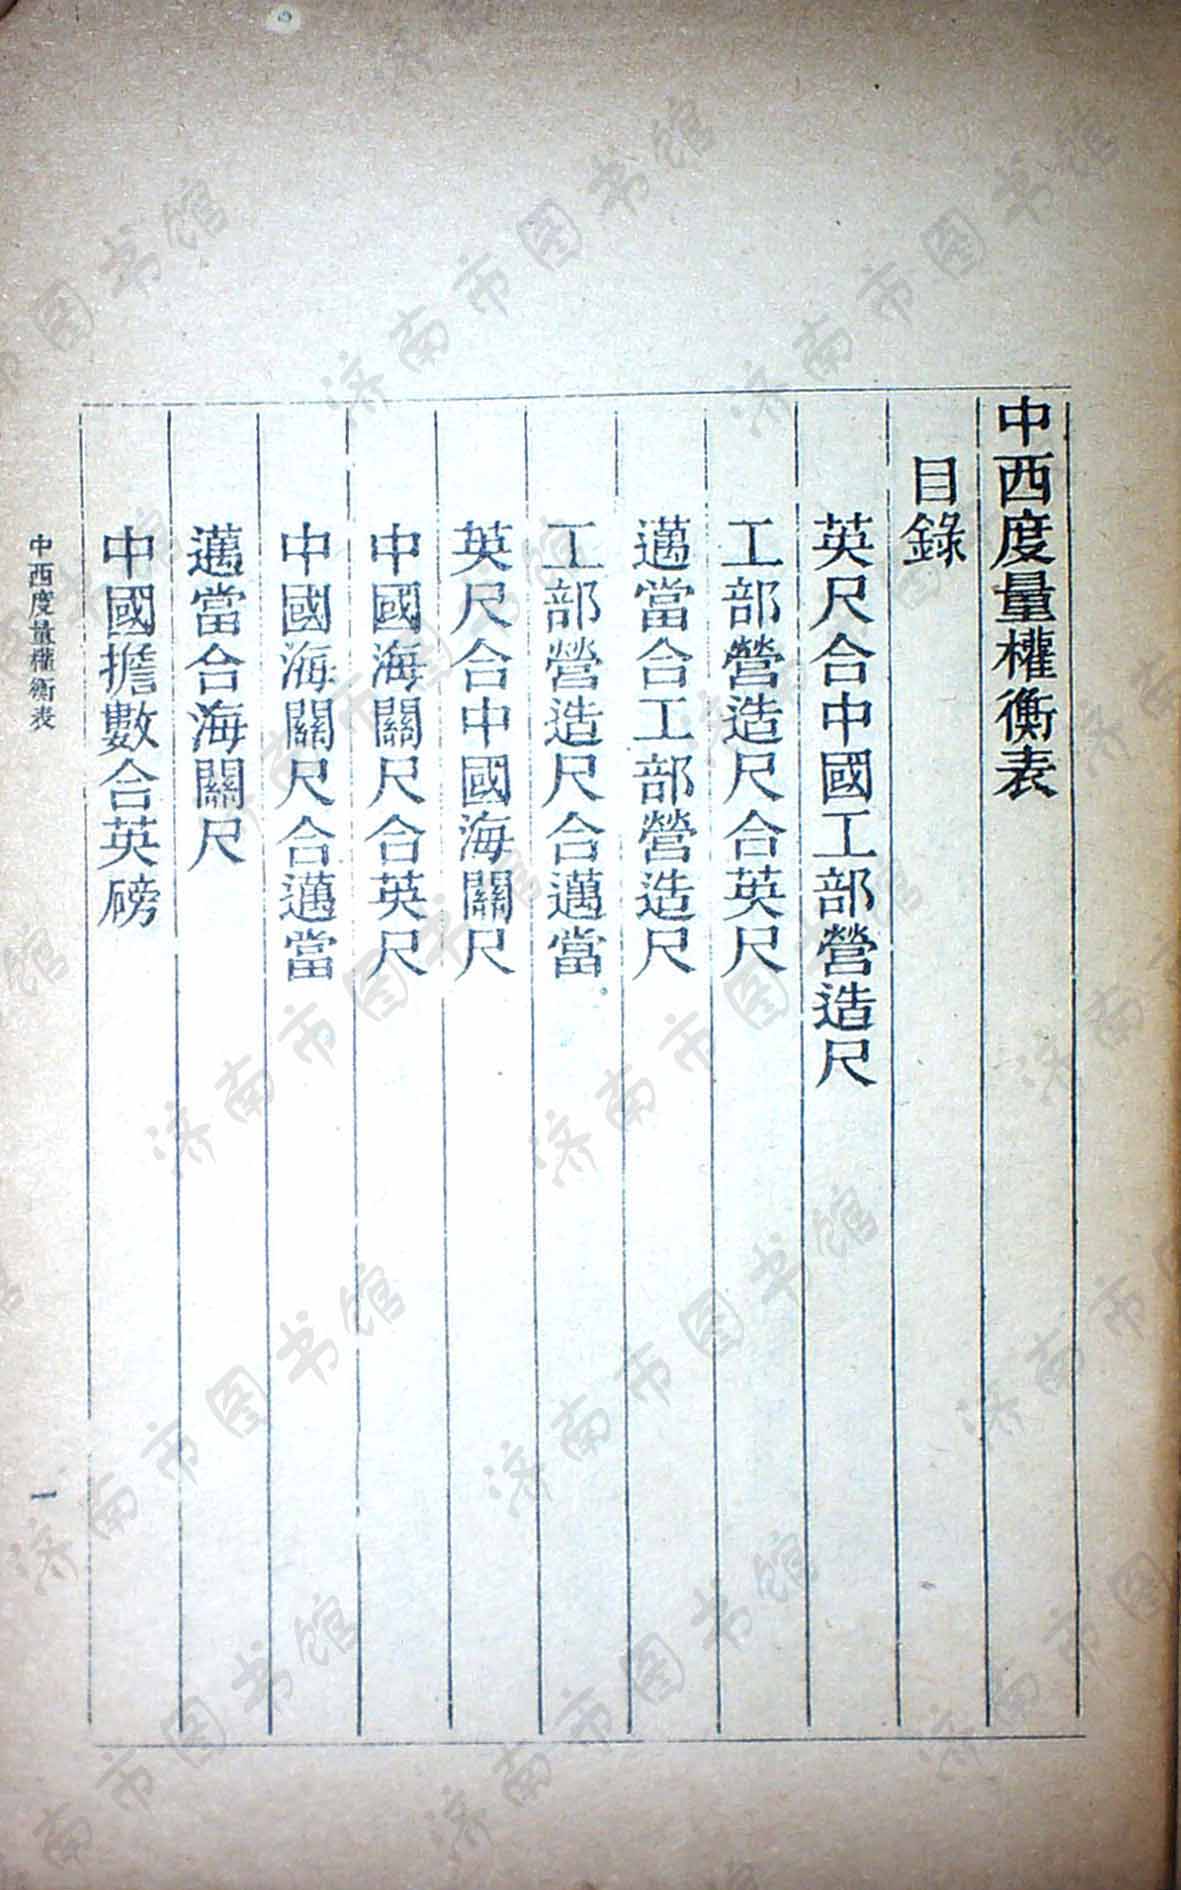 中西度量權衡表
目錄
英尺合中國工部營造尺
工部營造尺合英尺
邁當合工部營造尺
工部營造尺合邁當。
英尺合中國海關尺
中國海關尺合英尺
中國海關尺合邁當
邁當合海關尺
中國擔數合英磅
中西度量權衡表
一
济南市图书馆